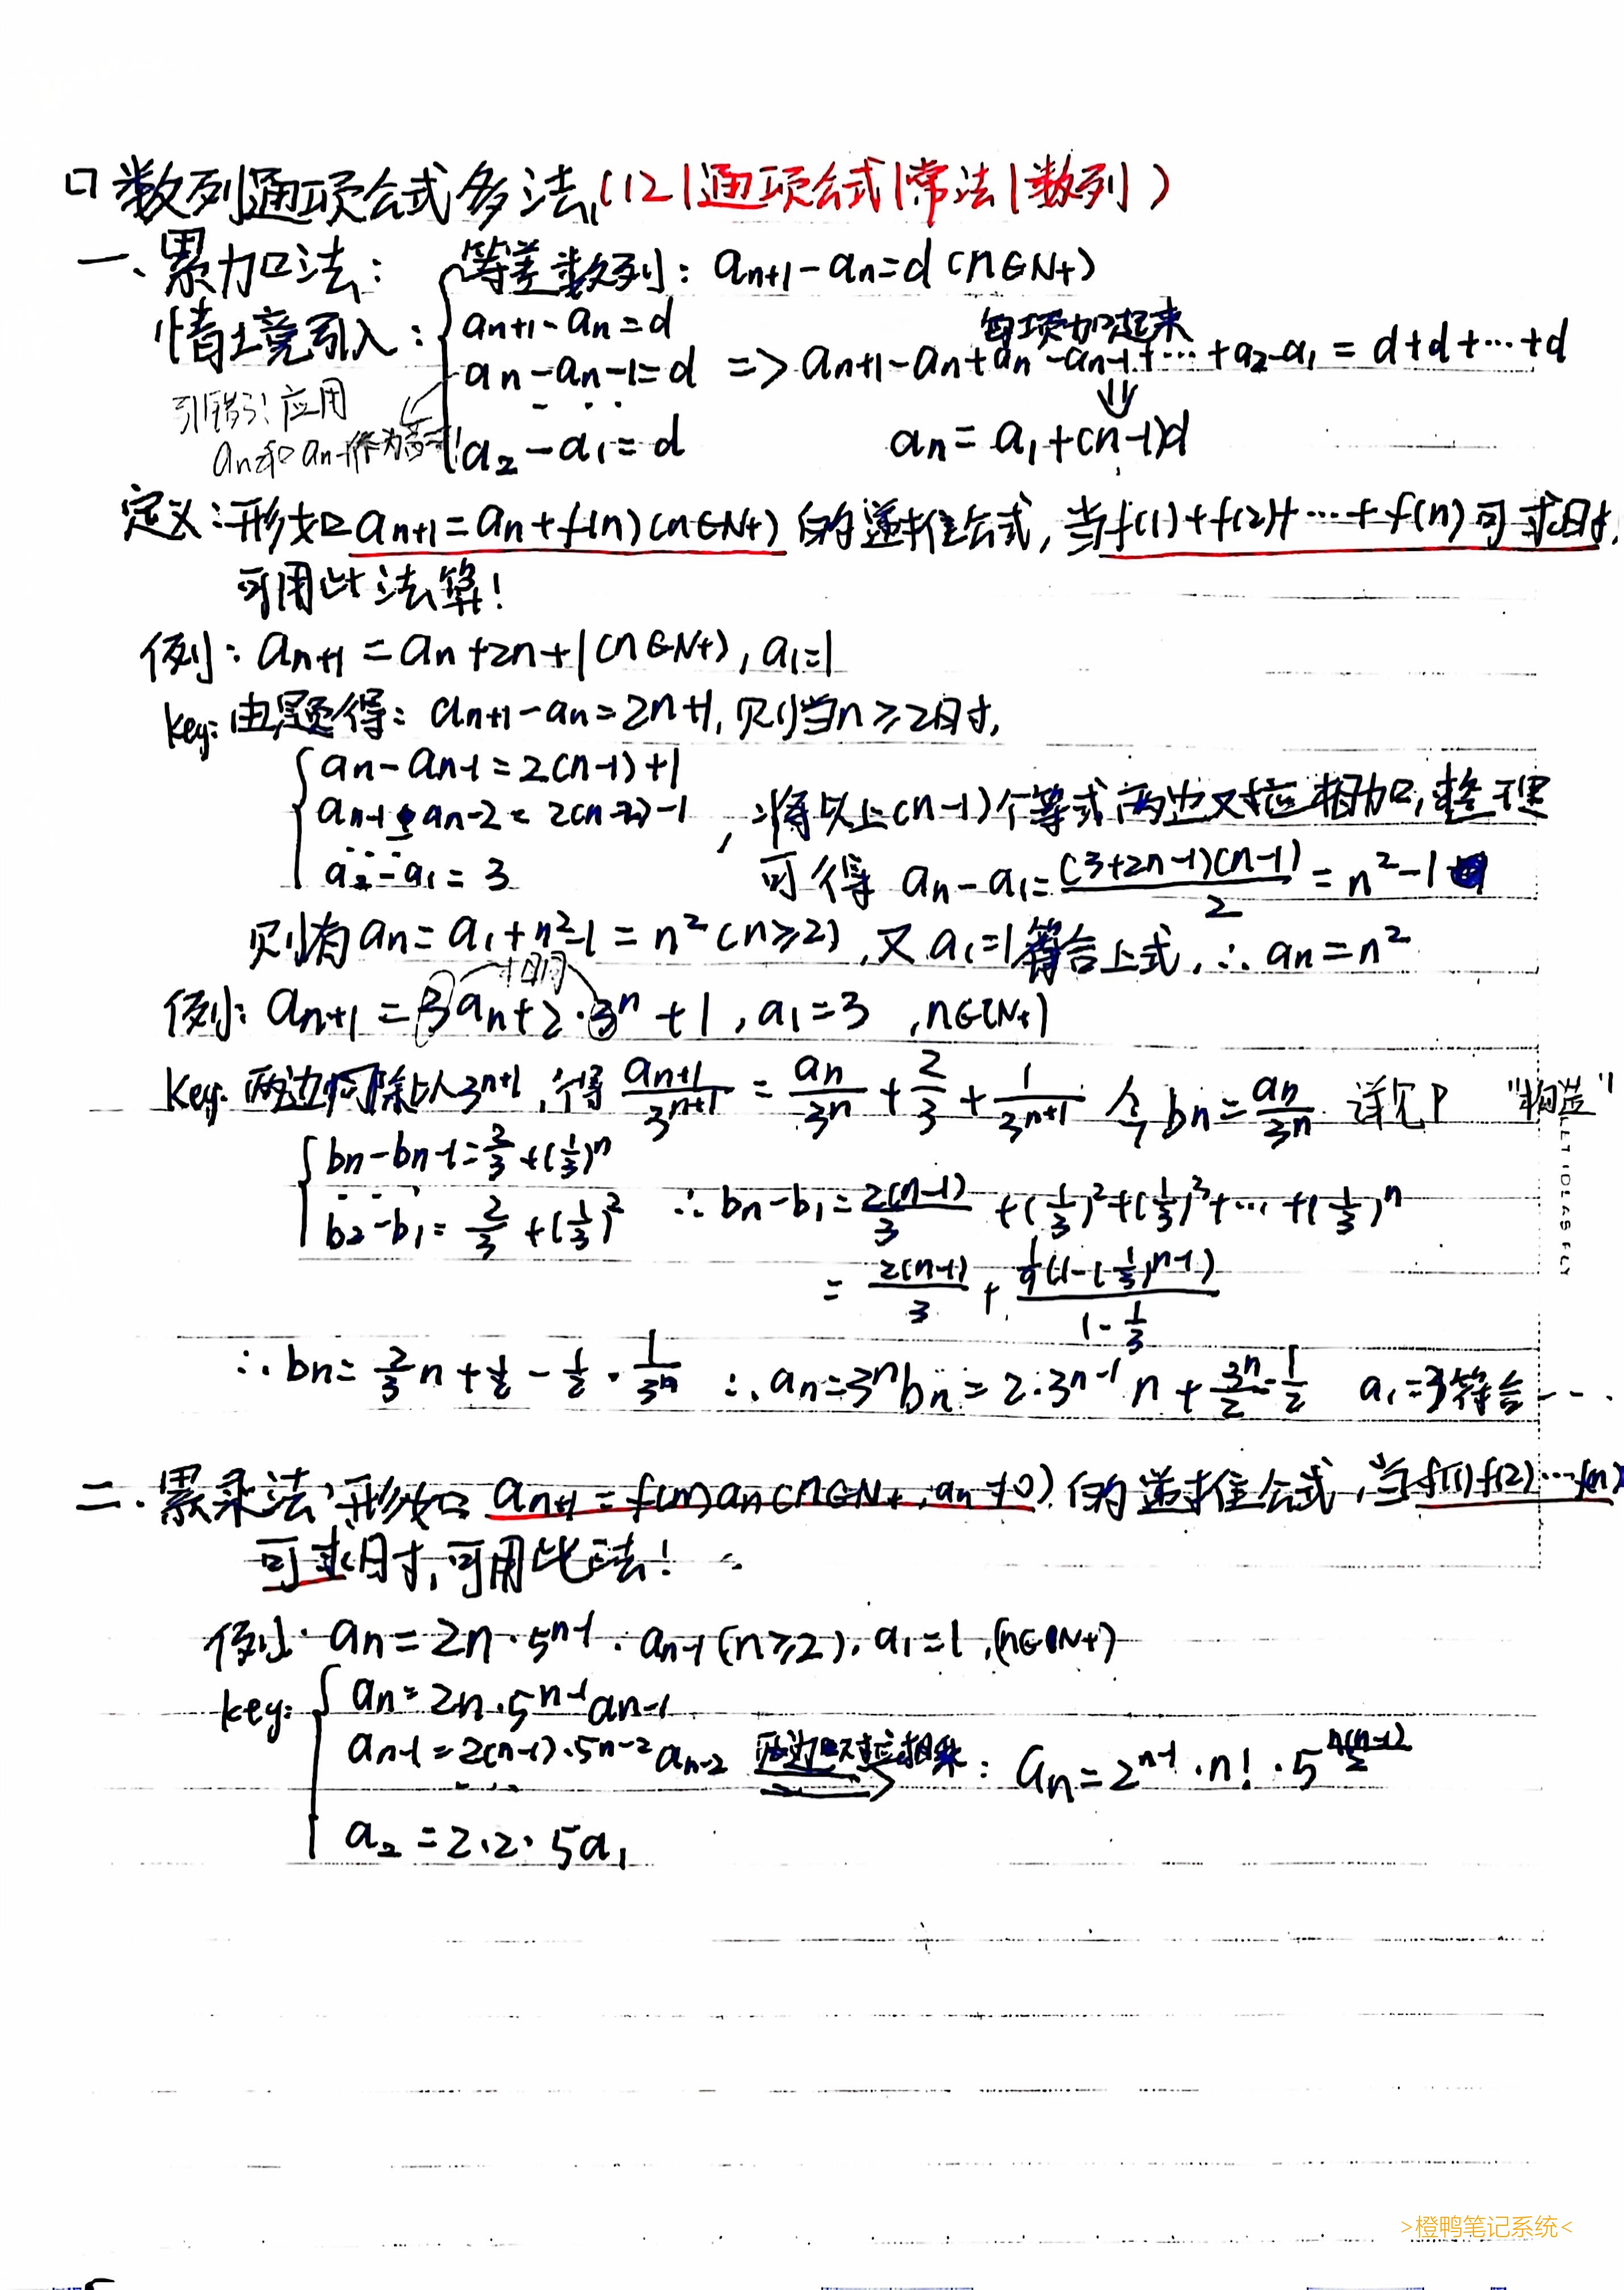 口数列通项公式多法(121通项公式|常法|数列)
一、累加法：
等差数列：an+1-an=d(n∈N+)
情境引入：
an+1-an=d
每项加起来
an-an-1=d => an+1-an+an-an-1+…+a2-a1=d+d+…+d
应用
⇓
a2-a1=d
an=a1+(n-1)d
定义：形如an+1=an+f(n)(n∈N+)的递推公式，当f(1)+f(2)+…+f(n)可求时，
可用此法算！
例：an+1=an+2n+1(n∈N+)，a1=1
key：由题得：an+1-an=2n+1，则当n≥2时，
an-an-1=2(n-1)+1
an-1-an-2=2(n-2)-1，将以上(n-1)个等式两边对应相加，整理
a2-a1=3
可得 an-a1=(3+2n-1)(n-1)/2=n²-1
则有an=a1+n²-1=n²(n≥2)，又a1=1符合上式，∴an=n²
相同
例：an+1=3an+2·3ⁿ+1，a1=3，n∈(N+)
key：两边同除以3ⁿ⁺¹，得 an+1/3ⁿ⁺¹=an/3ⁿ+2/3+1/3ⁿ⁺¹ 令bn=an/3ⁿ 详见P "构造"
bn-bn-1=2/3+(1/3)ⁿ
b2-b1=2/3+(1/3)² ∴bn-b1=2(n-1)/3+(1/3)²+(1/3)³+…+(1/3)ⁿ
=2(n-1)/3+1/9(1-(1/3)ⁿ⁻¹)/(1-1/3)
∴bn=2/3n+1/2-1/2·1/3ⁿ ∴an=3ⁿbn=2·3ⁿ⁻¹n+3ⁿ/2-1/2 a1=3符合…
二、累乘法：形如an+1=f(n)an(n∈N+，an≠0)的递推公式，当f(1)f(2)…f(n)
可求时，可用此法！
例：an=2n·5ⁿ⁻¹·an-1(n≥2)，a1=1，(n∈N+)
key：an=2n·5ⁿ⁻¹an-1
an-1=2(n-1)·5ⁿ⁻²an-2 两边对应相乘：an=2ⁿ⁻¹·n!·5^(n(n-1)/2)
a2=2·2·5a1
>橙鸭笔记系统<